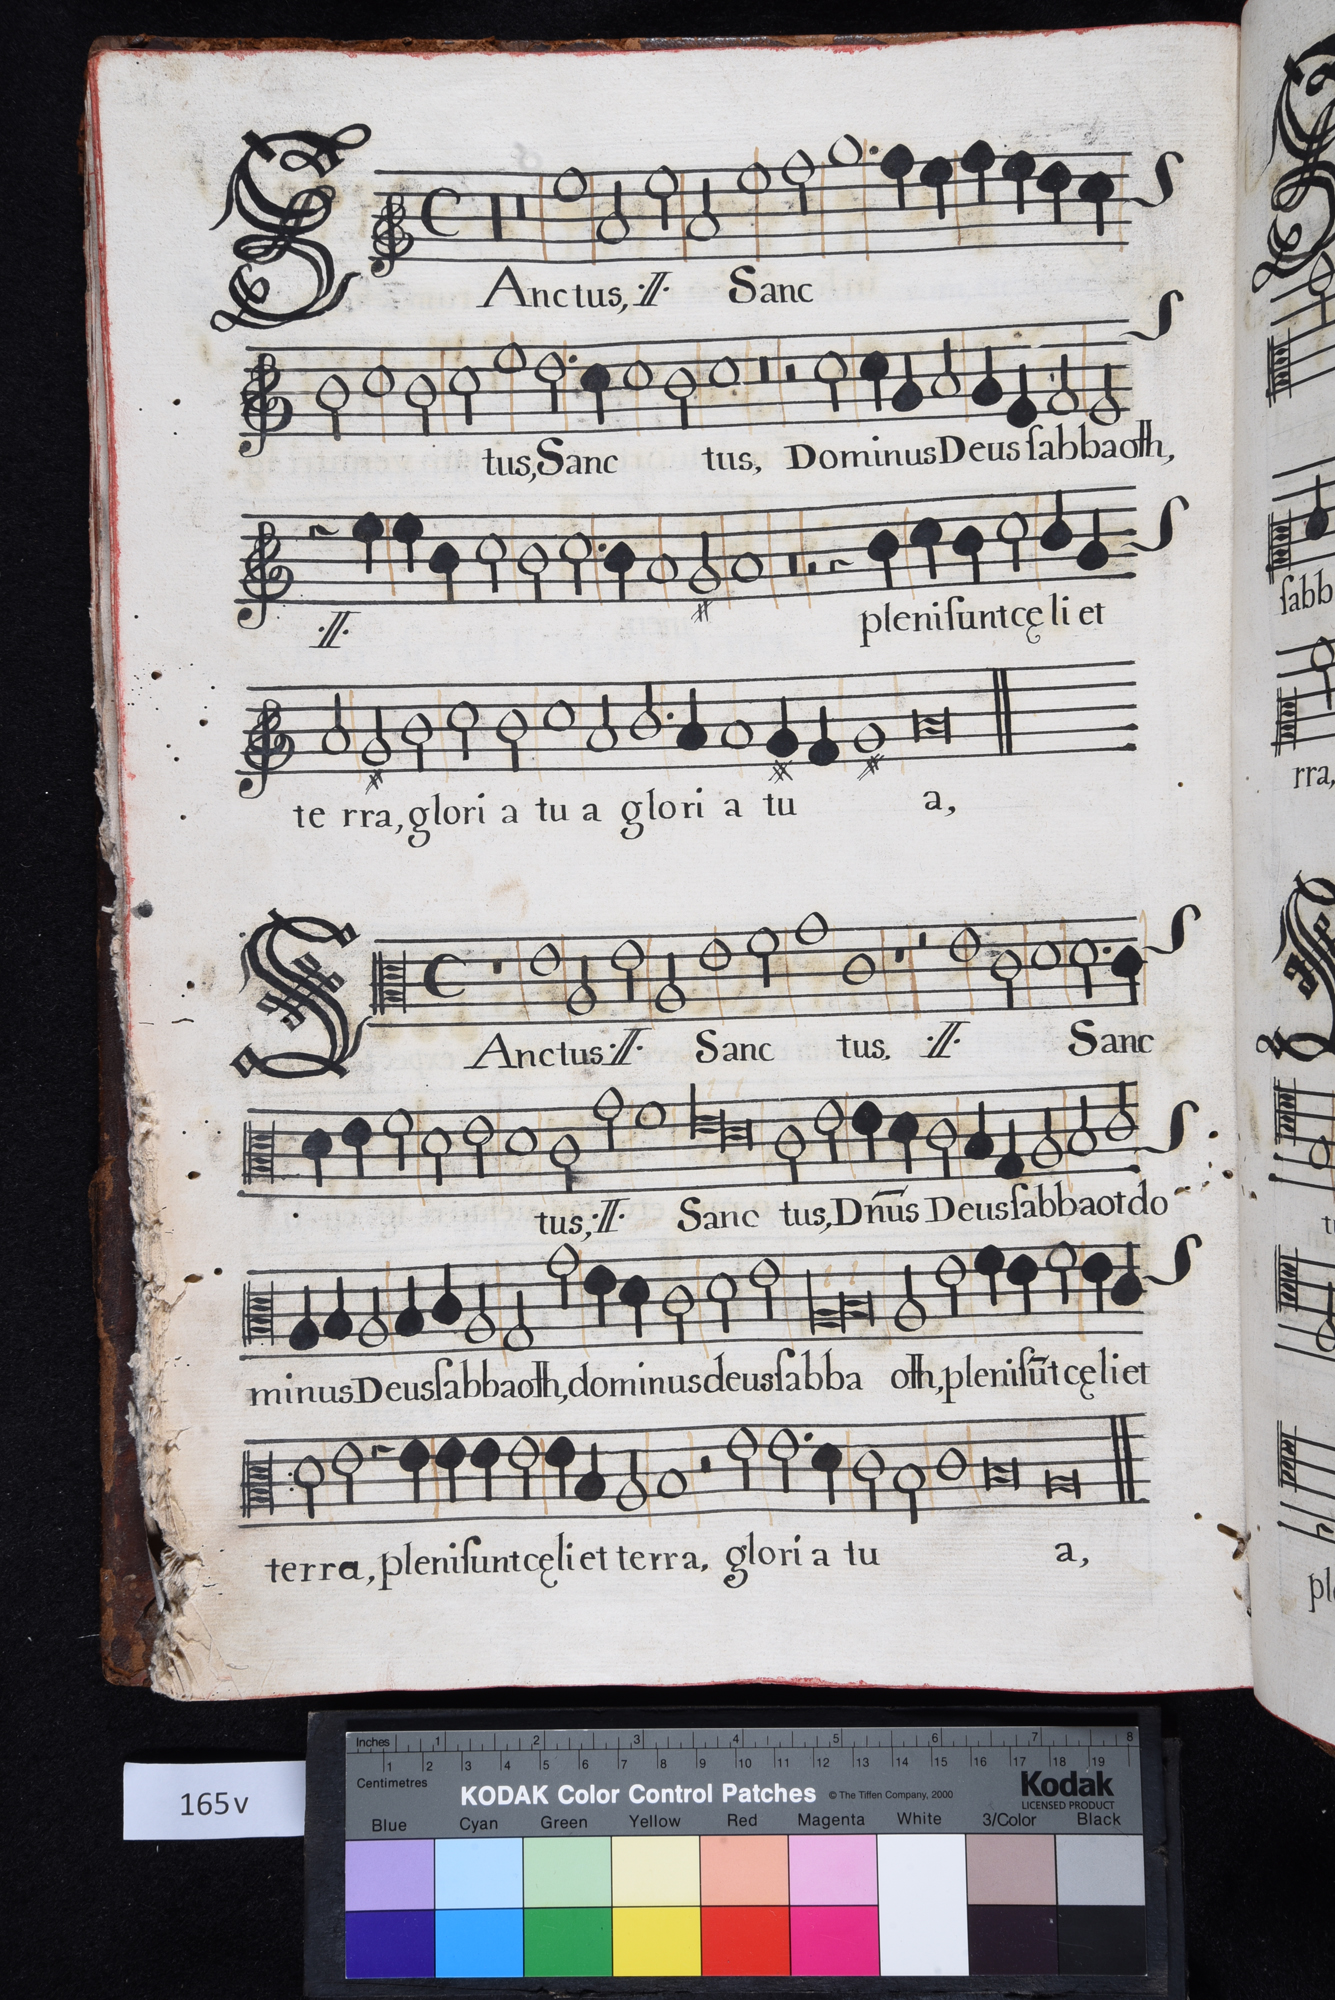 SAnctus, :||: Sanc
tus, Sanc tus, Dominus Deus ſabbaoth,
:||: pleni ſunt cęli et
te rra, glori a tu a glori a tu a,
SAnctus :||: Sanc tus. :||: Sanc
tus, :||: Sanc tus, Dn̄us Deus ſabbaot do
minus Deus ſabbaoth, dominus deus ſabba oth, pleni ſūt cęli et
terra, pleni ſunt cęli et terra, glori a tu a,
ſabb
rra,
tu
ple
165v
Inches 1 2 3 4 5 6 7 8
Centimetres 1 2 3 4 5 6 7 8 9 10 11 12 13 14 15 16 17 18 19
KODAK Color Control Patches © The Tiffen Company, 2000 Kodak
LICENSED PRODUCT
Blue Cyan Green Yellow Red Magenta White 3/Color Black